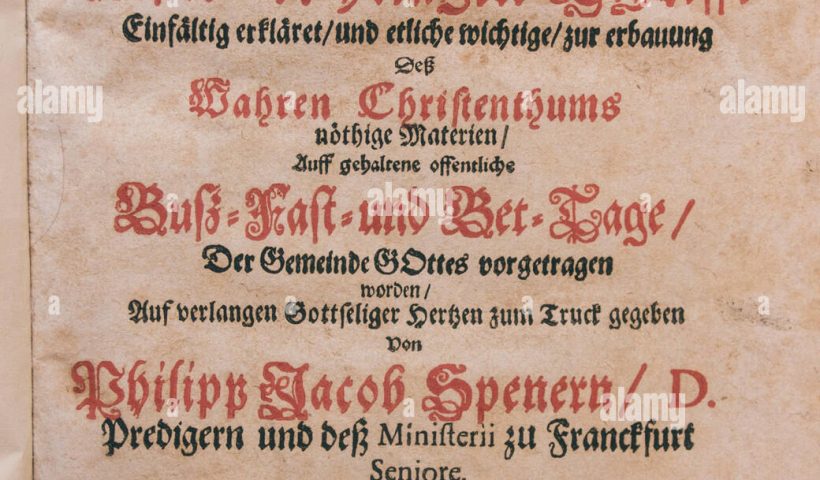 Einfältig erkläret/und etliche wichtige/zur erbauung
Deß
Wahren Christenthums
nöthige Materien/
Auff gehaltene offentliche
Buß-Fast-und Bet-Tage/
Der Gemeinde GOttes vorgetragen
worden/
Auf verlangen Gottseliger Hertzen zum Truck gegeben
Von
Philipp Jacob Spenern/ D.
Predigern und deß Ministerii zu Franckfurt
Seniore.
alamy
alamy
alamy
alamy
a
a
a